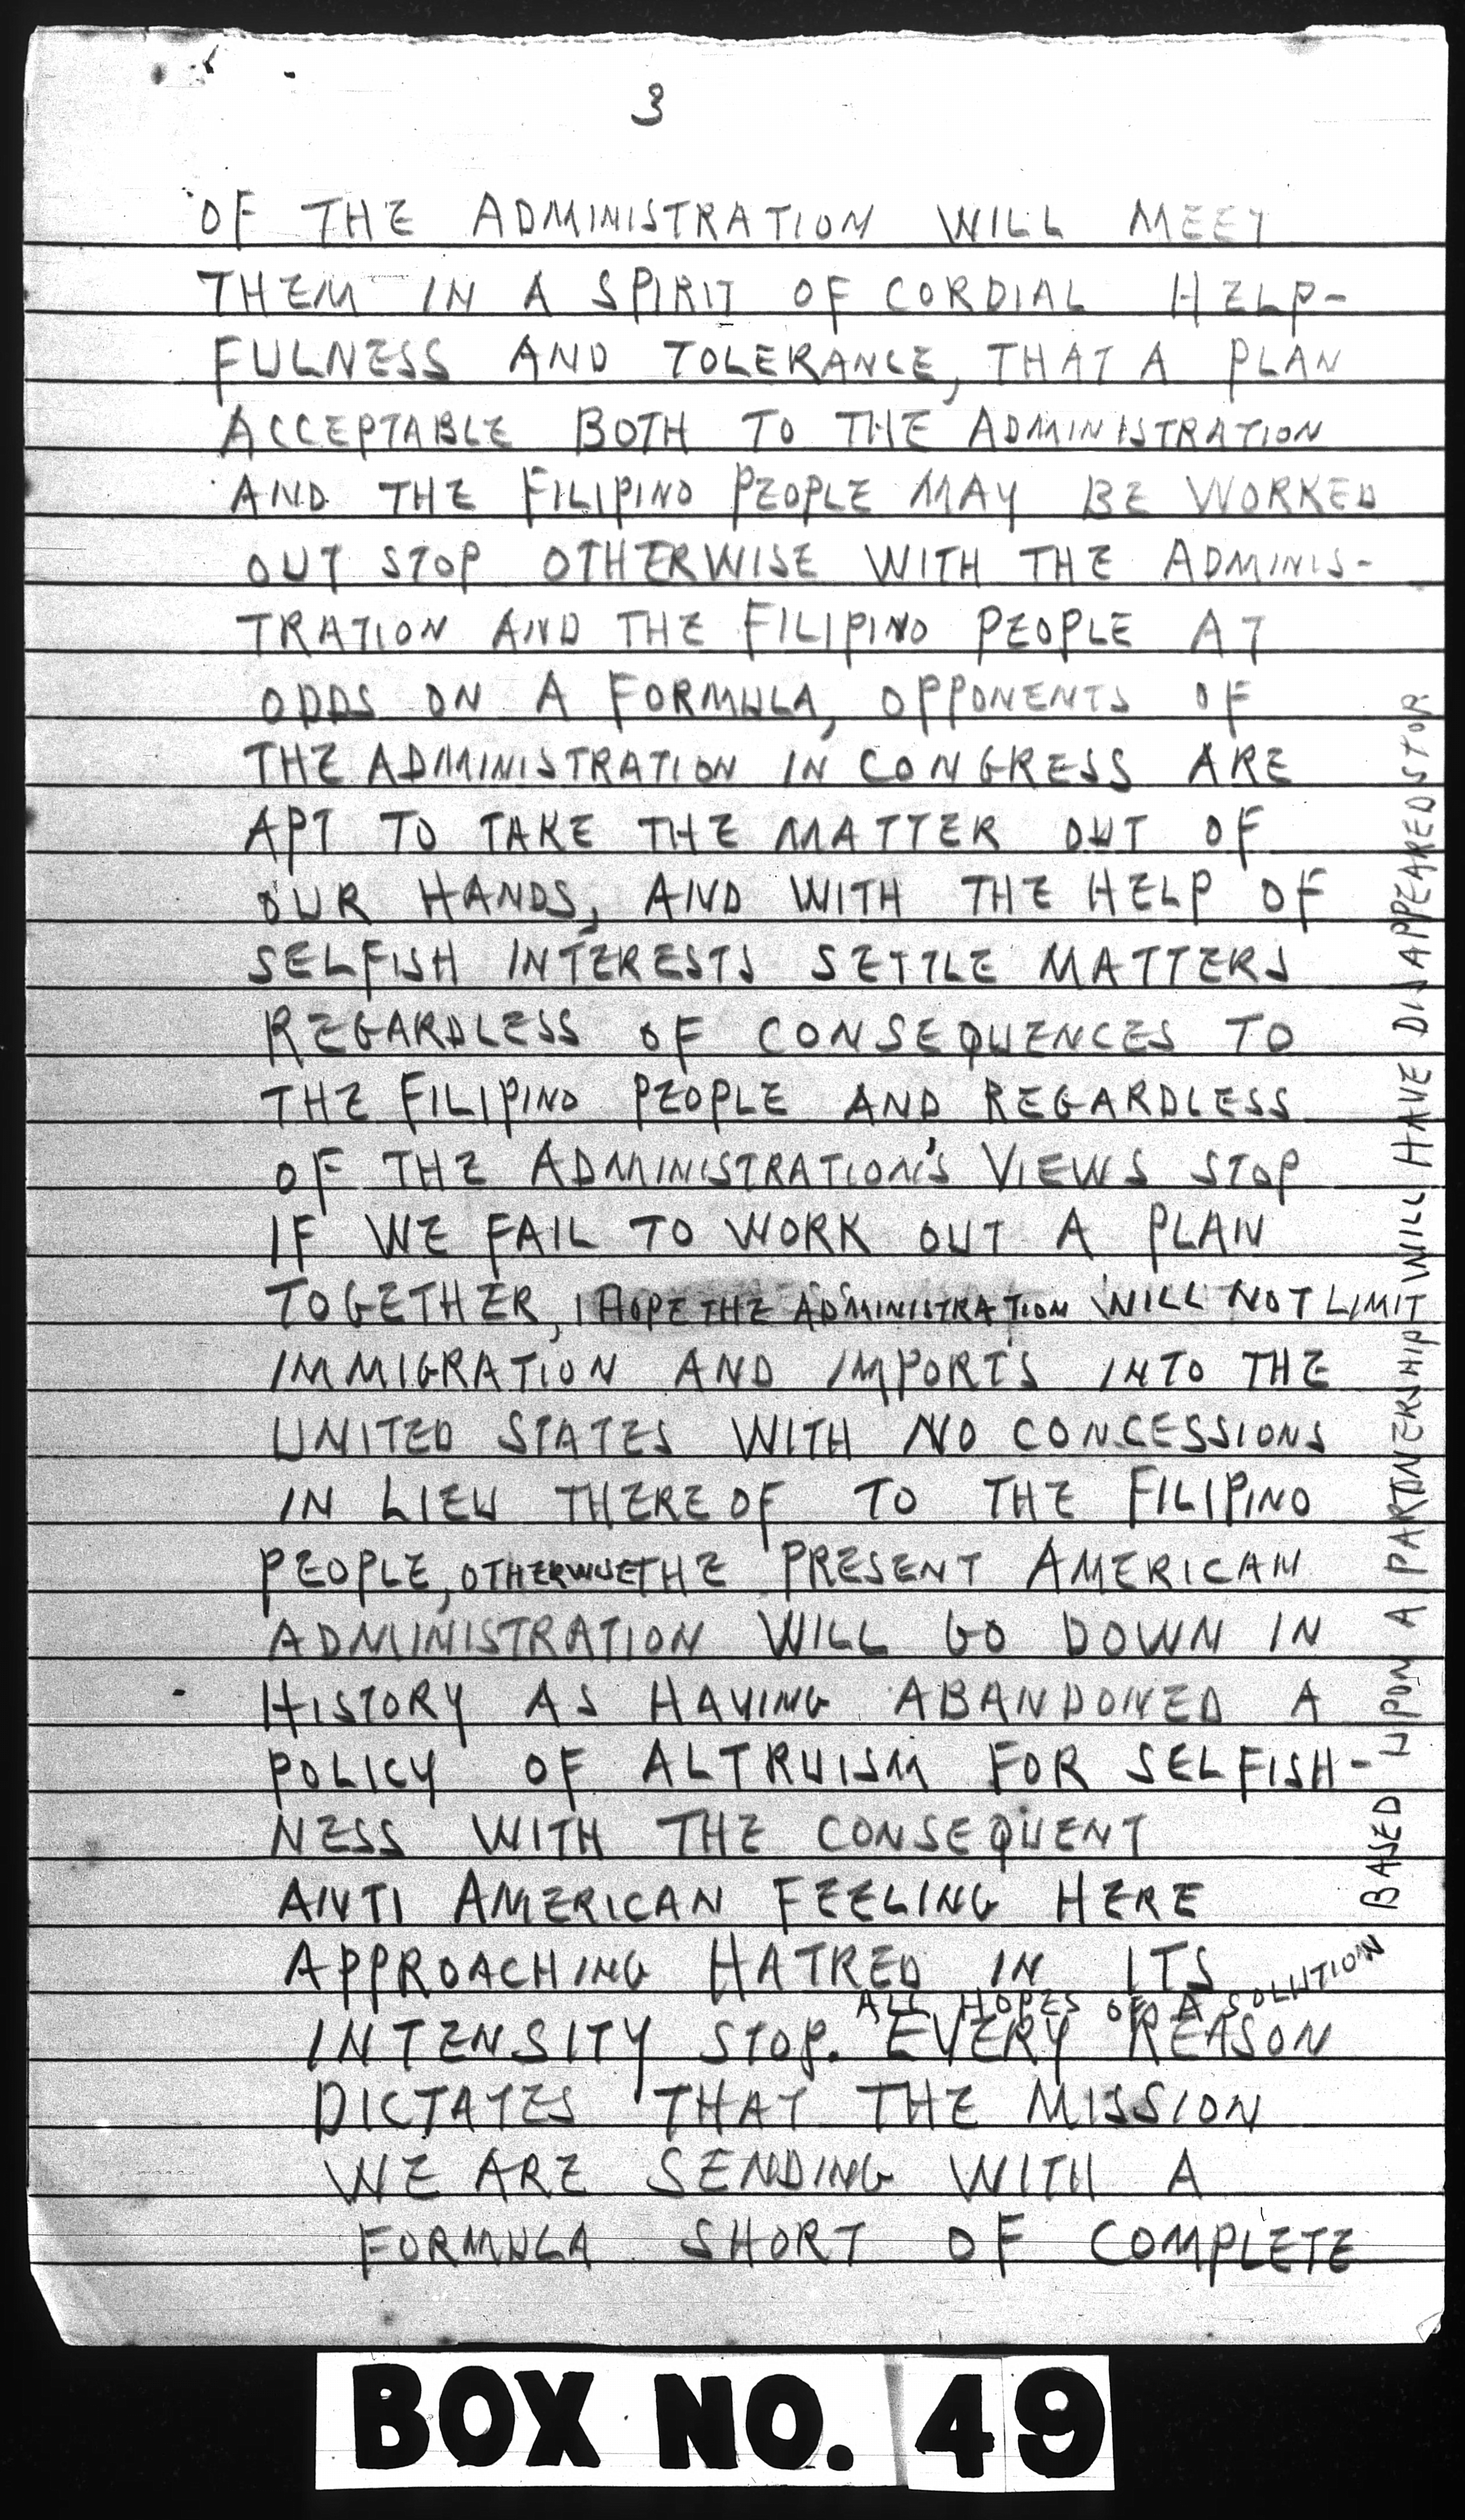 3
OF THE ADMINISTRATION WILL MEET
THEM IN A SPIRIT OF CORDIAL HELP-
FULNESS AND TOLERANCE, THAT A PLAN
ACCEPTABLE BOTH TO THE ADMINISTRATION
AND THE FILIPINO PEOPLE MAY BE WORKED
OUT STOP OTHERWISE WITH THE ADMINIS-
TRATION AND THE FILIPINO PEOPLE AT
ODDS ON A FORMULA, OPPONENTS OF
THE ADMINISTRATION IN CONGRESS ARE
APT TO TAKE THE MATTER OUT OF
OUR HANDS, AND WITH THE HELP OF
SELFISH INTERESTS SETTLE MATTERS
REGARDLESS OF CONSEQUENCES TO
THE FILIPINO PEOPLE AND REGARDLESS
OF THE ADMINISTRATION'S VIEWS STOP
IF WE FAIL TO WORK OUT A PLAN
TOGETHER, I HOPE THE ADMINISTRATION WILL NOT LIMIT
IMMIGRATION AND IMPORTS INTO THE
UNITED STATES WITH NO CONCESSIONS
IN LIEU THEREOF TO THE FILIPINO
PEOPLE, OTHERWISE THE PRESENT AMERICAN
ADMINISTRATION WILL GO DOWN IN
HISTORY AS HAVING ABANDONED A
POLICY OF ALTRUISM FOR SELFISH-
NESS WITH THE CONSEQUENT
ANTI AMERICAN FEELING HERE
APPROACHING HATRED IN ITS
INTENSITY STOP. EVERY REASON
ALL HOPES OF A SOLUTION BASED UPON A PARTNERSHIP WILL HAVE DISAPPEARED STOP
DICTATES THAT THE MISSION
WE ARE SENDING WITH A
FORMULA SHORT OF COMPLETE
BOX NO. 49